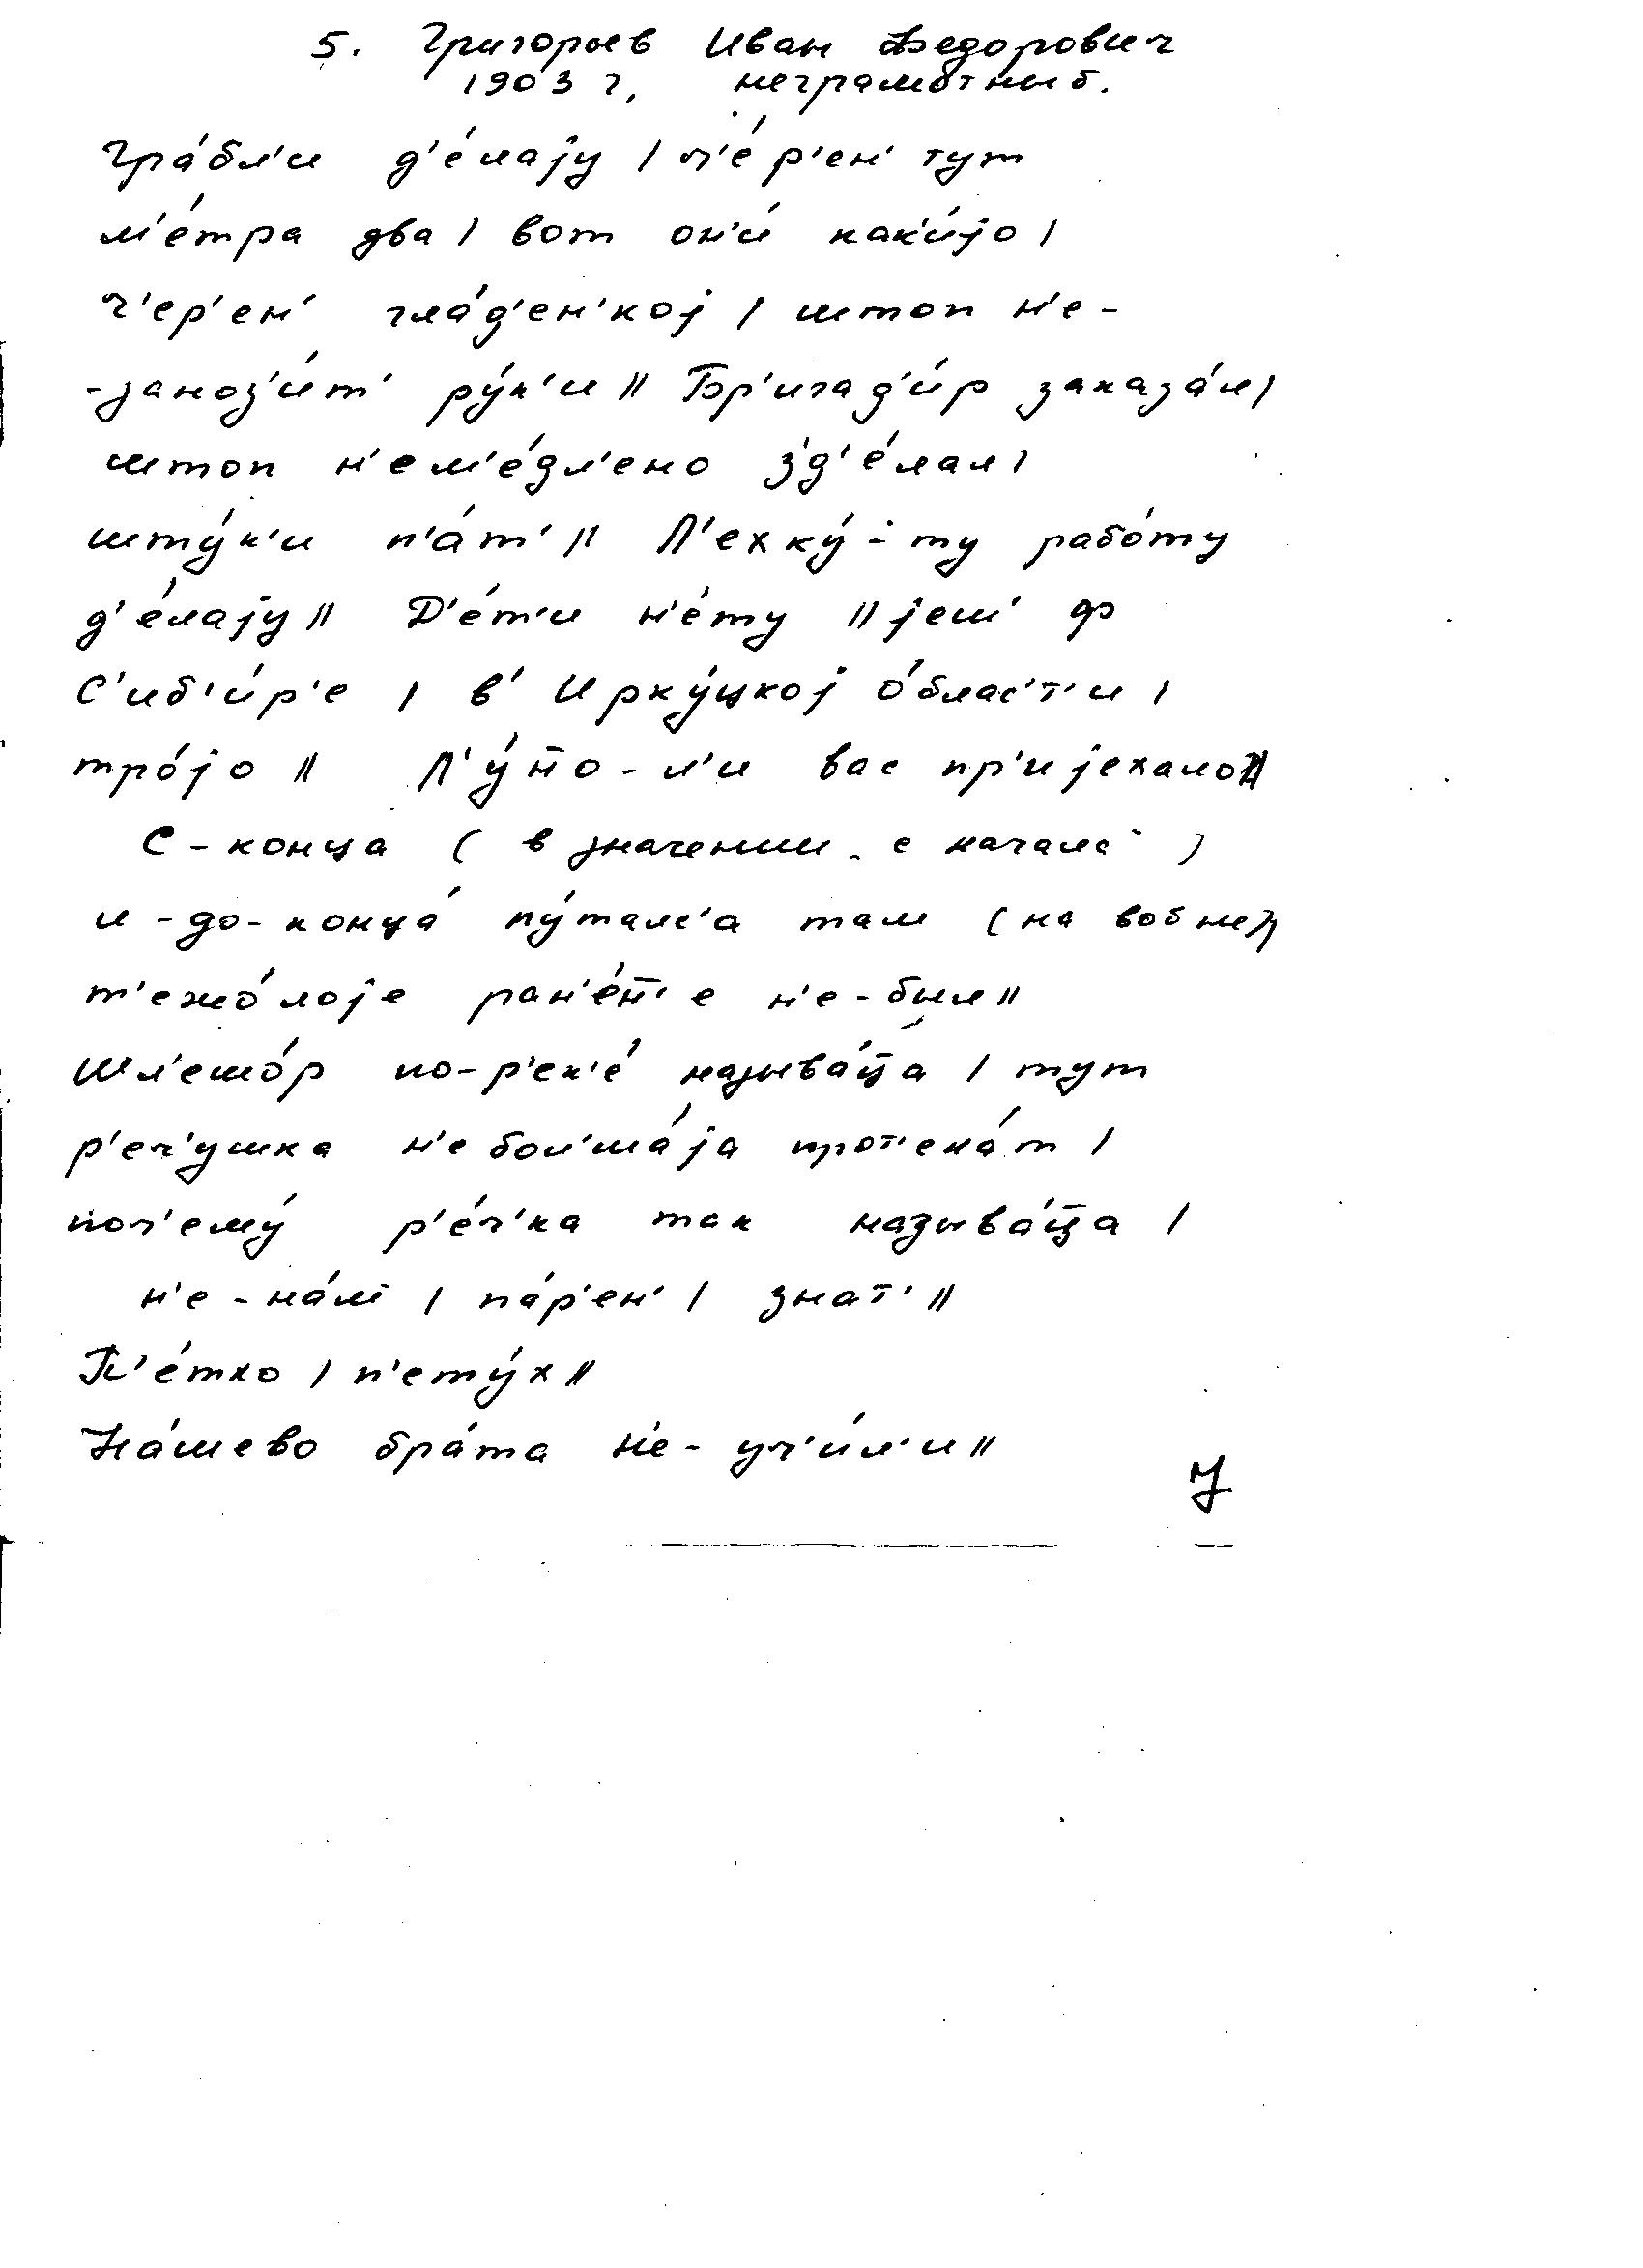 5. Григорьев Иван Федорович
1903 г, неграмотный.
Гра́бл'и д'е́лаjу / ч'е́р'ен' тут
м'е́тра два / вот он'и́ как'и́jо /
Ч'ер'ен' гла́д'ен'коj / штоп н'е-
-заноз'и́т' ру́к'и // Бр'игад'и́р заказа́л /
штоп н'ем'е́дл'ено з'д'е́лал /
шту́к'и п'а́т' // Л'ехку́-ту рабо́ту
д'е́лаjу // Д'е́т'и н'е́ту // jеш' ф
С'иб'и́р'е / в' Ирку́цкоj о́блас'т'и /
тро́jо // Л'у́н̄о-л'и вас пр'иjехало //
С-конца (в значении „с начала“)
и-до-конца́ пу́талс'а там (на войне) //
т'ежо́лоjе ран'е́н̄'е н'е-был //
Шл'ешо́р по-р'ек'е́ называ́ц̄а / тут
р'еч'ушка н'ебол'ша́jа прот'ека́т /
поч'ему́ р'е́ч'ка так называ́ц̄а /
н'е-на́м / па́р'ен' / знат' //
П'е́тко / п'ету́х //
На́шево бра́та н'е-уч'и́л'и //
7